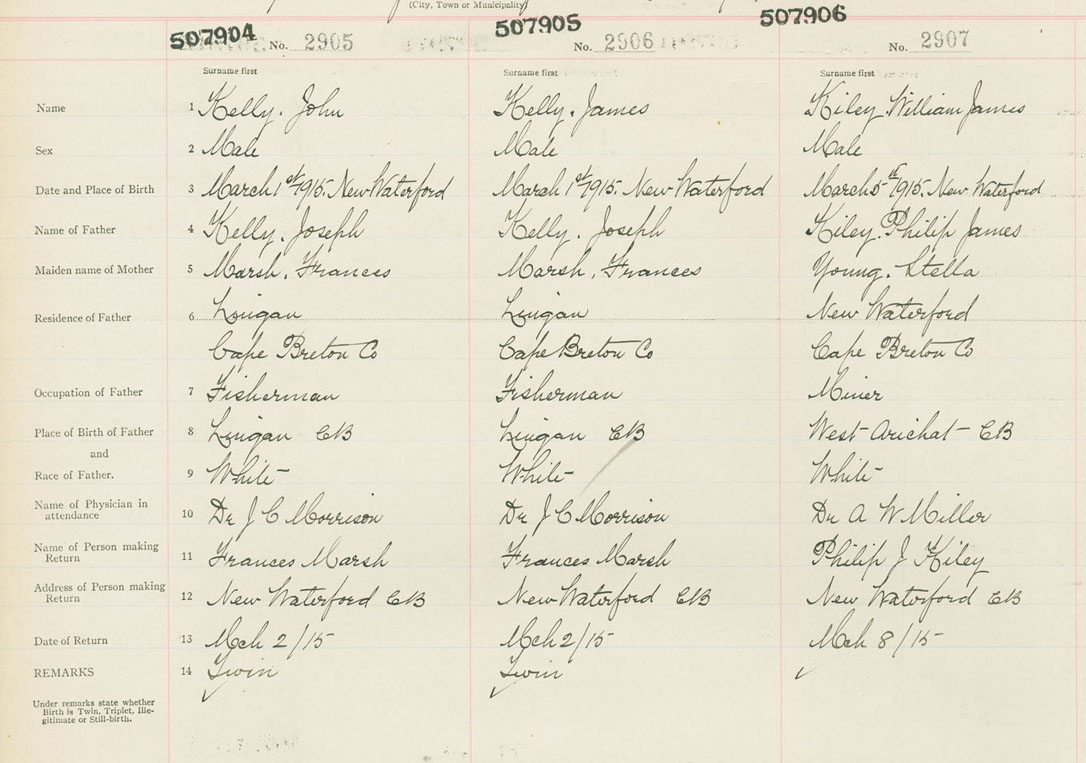 (City, Town or Municipality)
507904 507905 507906
No. 2905 No. 2906 No. 2907
Surname first Surname first Surname first
Name 1 Kelly. John Kelly. James Kiley. William James
Sex 2 Male Male Male
Date and Place of Birth 3 March 1st 1915. New Waterford March 1st 1915. New Waterford March 5th 1915. New Waterford
Name of Father 4 Kelly. Joseph Kelly. Joseph Kiley. Philip James
Maiden name of Mother 5 Marsh. Frances Marsh. Frances Young. Stella
Residence of Father 6 Lingan Lingan New Waterford
Cape Breton Co Cape Breton Co Cape Breton Co
Occupation of Father 7 Fisherman Fisherman Miner
Place of Birth of Father 8 Lingan CB Lingan CB West Arichat CB
and
Race of Father. 9 White White White
Name of Physician in
attendance 10 Dr J C Morrison Dr J C Morrison Dr A W Miller
Name of Person making
Return 11 Frances Marsh Frances Marsh Philip J Kiley
Address of Person making
Return 12 New Waterford CB New Waterford CB New Waterford CB
Date of Return 13 Mch 2/15 Mch 2/15 Mch 8/15
REMARKS 14 Twin Twin
Under remarks state whether
Birth is Twin, Triplet, Ille-
gitimate or Still-birth.